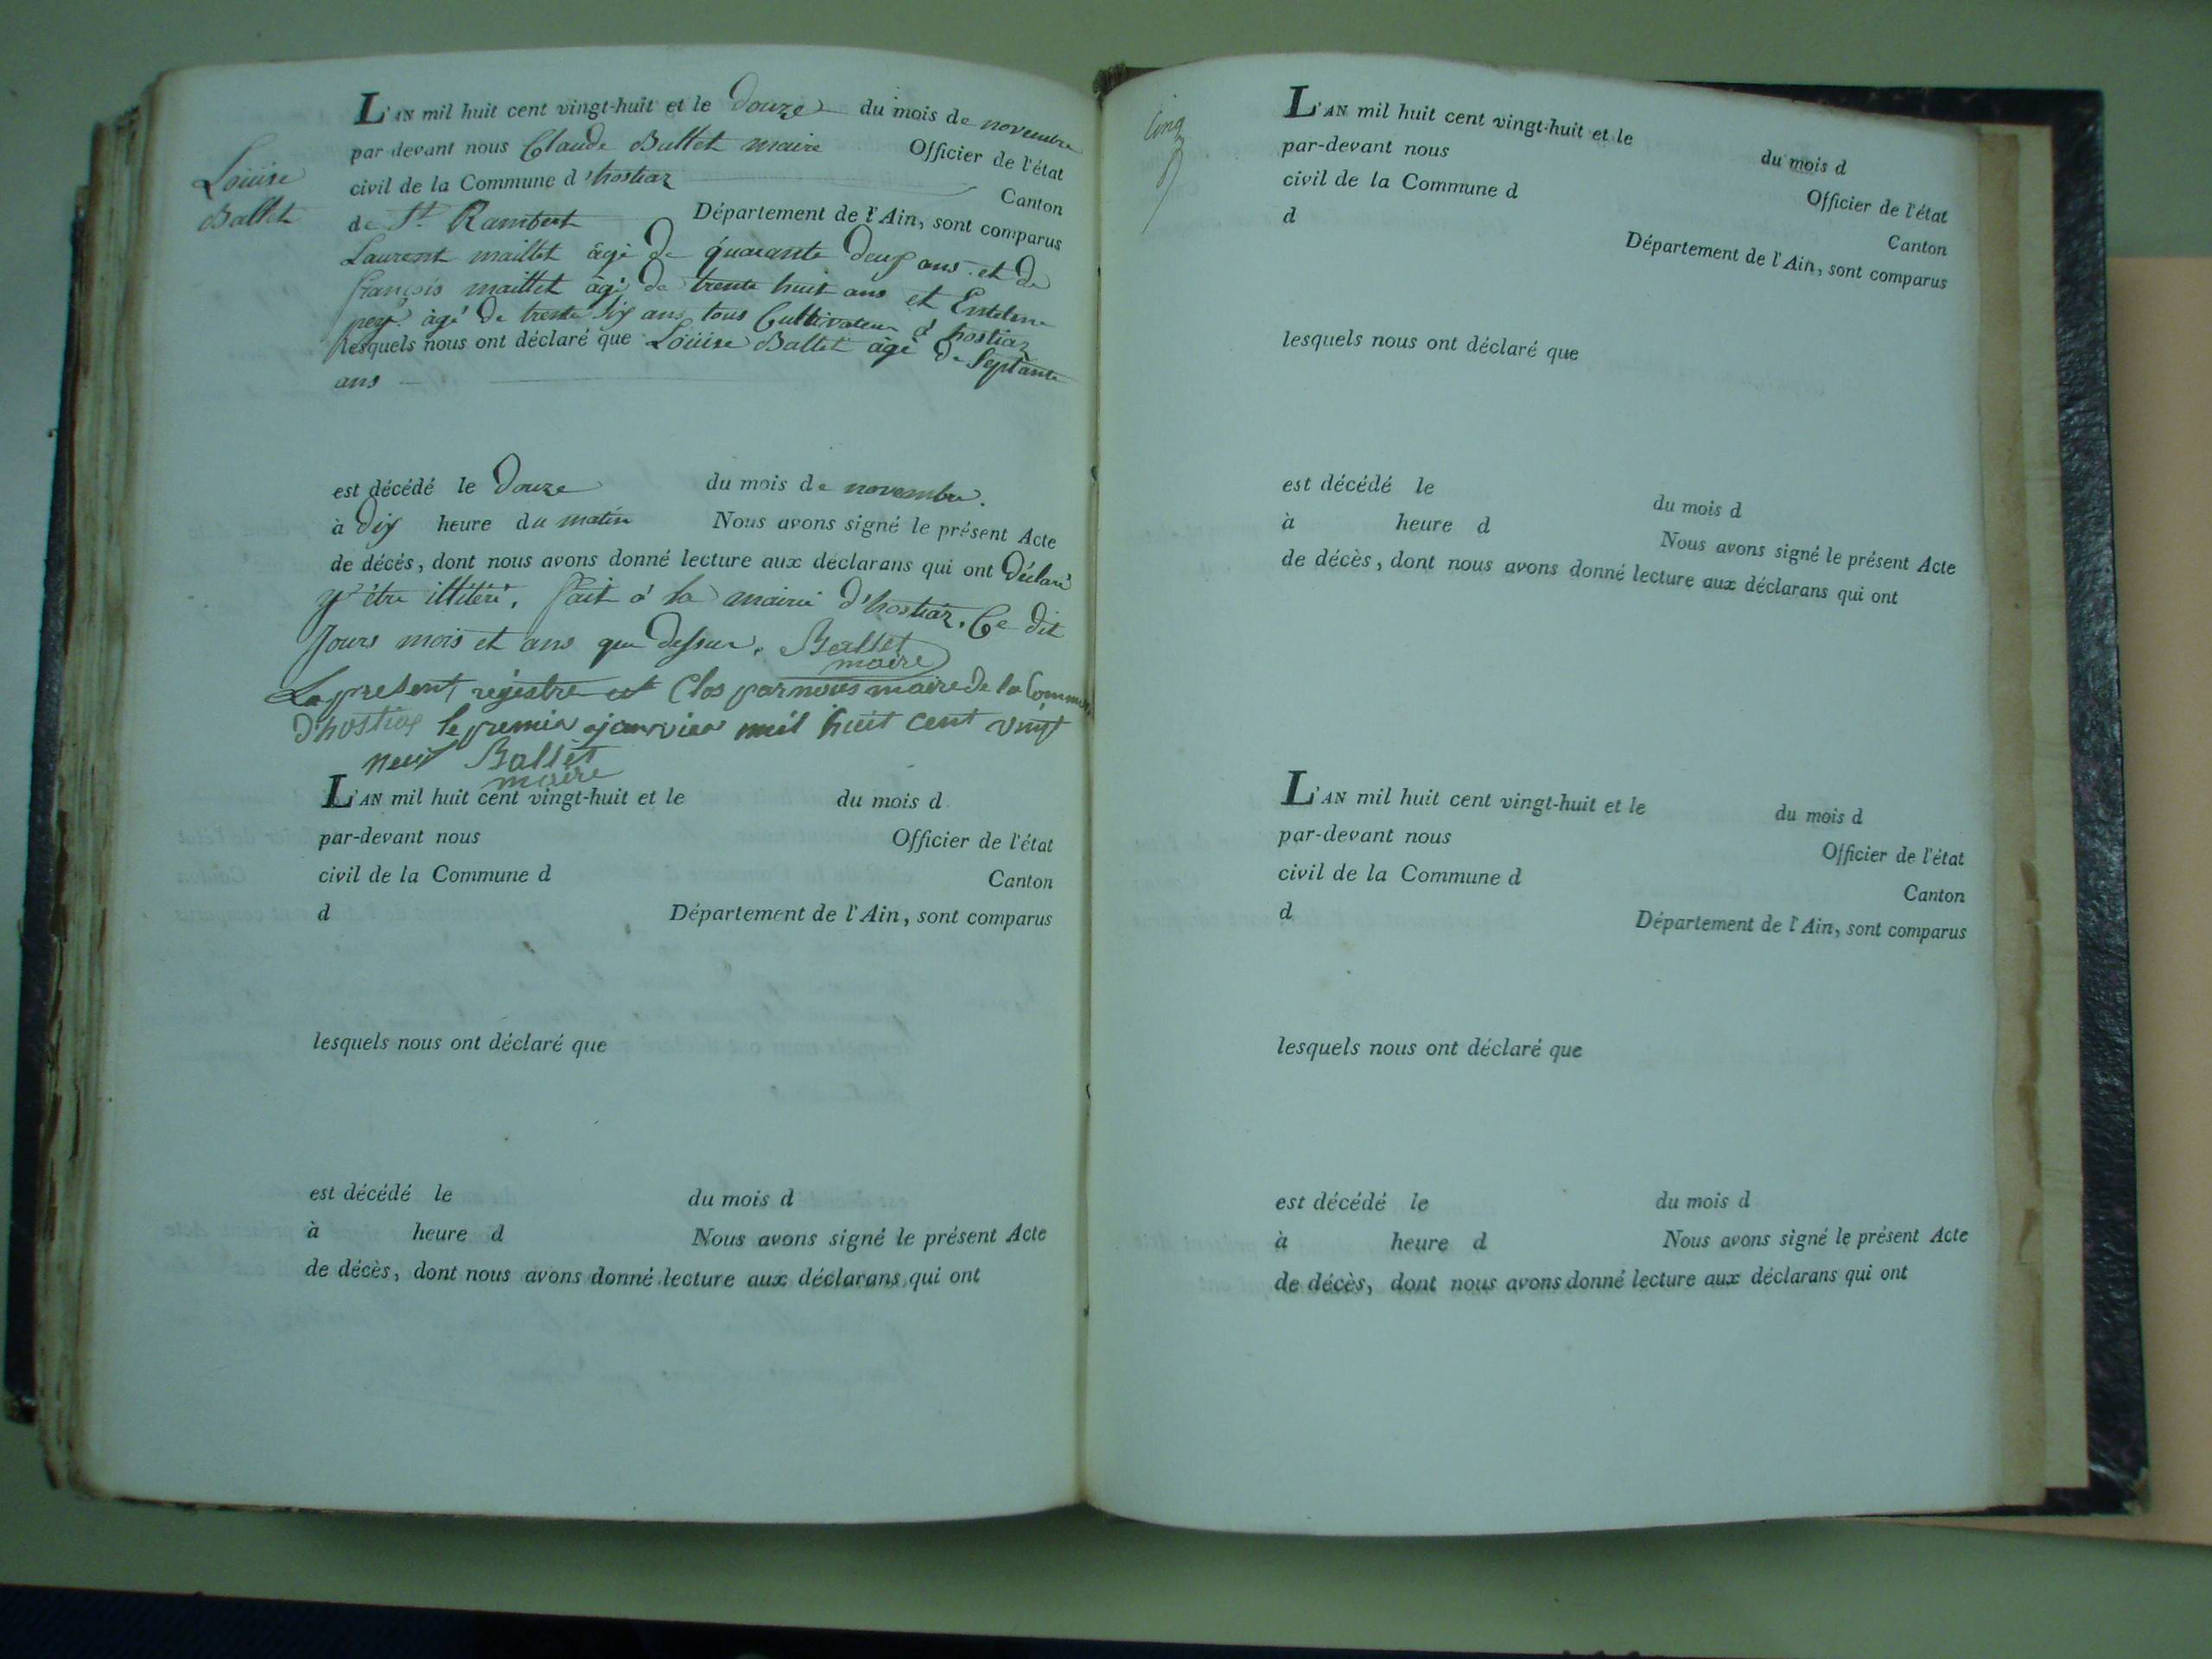 Louise
Ballet
L'AN mil huit cent vingt-huit et le douze du mois de novembre
par-devant nous Claude Ballet maire Officier de l'état
civil de la Commune d'hostiaz Canton
de St Rambert Département de l'Ain, sont comparus
Laurent maillet âgé de quarante deux ans et de
françois maillet âgé de trente huit ans et
âgé de trente six ans tous Cultivateur d'hostiaz
lesquels nous ont déclaré que Louise Ballet âgé de Septante
ans
est décédé le douze du mois de novembre.
à dix heure du matin Nous avons signé le présent Acte
de décés, dont nous avons donné lecture aux déclarans qui ont déclaré
y être illitéré, fait à la mairie d'hostiaz. Ce dit
Jours mois et ans que dessus. Ballet
maire
Le present registre est Clos par nous maire de la Commune
d'hostiaz le premier janvier mil huit cent vingt
neuf Ballet
maire
L'AN mil huit cent vingt-huit et le du mois d
par-devant nous Officier de l'état
civil de la Commune d Canton
d Département de l'Ain, sont comparus
lesquels nous ont déclaré que
est décédé le du mois d
à heure d Nous avons signé le présent Acte
de décès, dont nous avons donné lecture aux déclarans qui ont
cinq
L'AN mil huit cent vingt-huit et le du mois d
par-devant nous Officier de l'état
civil de la Commune d Canton
d Département de l'Ain, sont comparus
lesquels nous ont déclaré que
est décédé le du mois d
à heure d Nous avons signé le présent Acte
de décès, dont nous avons donné lecture aux déclarans qui ont
L'AN mil huit cent vingt-huit et le du mois d
par-devant nous Officier de l'état
civil de la Commune d Canton
d Département de l'Ain, sont comparus
lesquels nous ont déclaré que
est décédé le du mois d
à heure d Nous avons signé le présent Acte
de décès, dont nous avons donné lecture aux déclarans qui ont